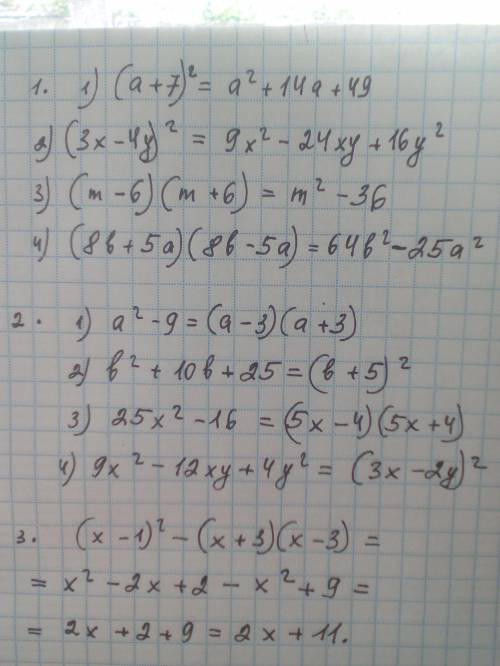 1. 1) (a+7)² = a² + 14a + 49
2) (3x - 4y)² = 9x² - 24xy + 16y²
3) (m - 6)(m + 6) = m² - 36
4) (8b + 5a)(8b - 5a) = 64b² - 25a²
2. 1) a² - 9 = (a - 3)(a + 3)
2) b² + 10b + 25 = (b + 5)²
3) 25x² - 16 = (5x - 4)(5x + 4)
4) 9x² - 12xy + 4y² = (3x - 2y)²
3. (x - 1)² - (x + 3)(x - 3) =
= x² - 2x + 2 - x² + 9 =
= 2x + 2 + 9 = 2x + 11.